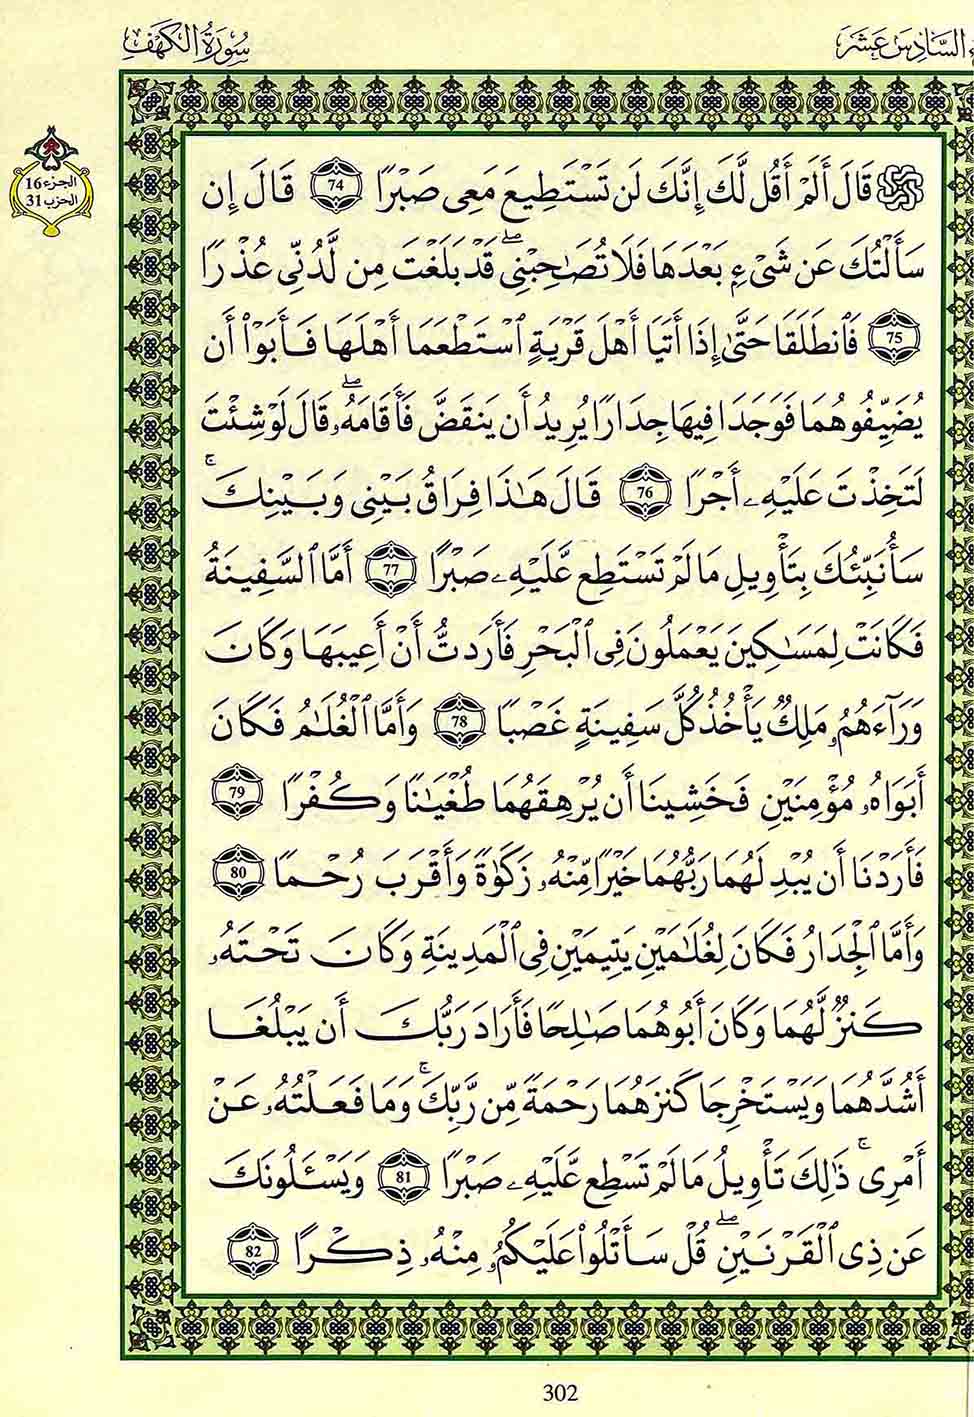 السَّادِسَ عَشَرَ
سُورَةُ الكَهْفِ
الجزء 16
الحزب 31
۞ قَالَ أَلَمْ أَقُل لَّكَ إِنَّكَ لَن تَسْتَطِيعَ مَعِى صَبْرًا 74 قَالَ إِن
سَأَلْتُكَ عَن شَىْءٍۭ بَعْدَهَا فَلَا تُصَٰحِبْنِىۖ قَدْ بَلَغْتَ مِن لَّدُنِّى عُذْرًا
75 فَٱنطَلَقَا حَتَّىٰ إِذَا أَتَيَا أَهْلَ قَرْيَةٍ ٱسْتَطْعَمَا أَهْلَهَا فَأَبَوْا۟ أَن
يُضَيِّفُوهُمَا فَوَجَدَا فِيهَا جِدَارًا يُرِيدُ أَن يَنقَضَّ فَأَقَامَهُۥۖ قَالَ لَوْ شِئْتَ
لَتَخِذْتَ عَلَيْهِۦ أَجْرًا 76 قَالَ هَٰذَا فِرَاقُ بَيْنِى وَبَيْنِكَۚ
سَأُنَبِّئُكَ بِتَأْوِيلِ مَا لَمْ تَسْتَطِع عَّلَيْهِۦ صَبْرًا 77 أَمَّا ٱلسَّفِينَةُ
فَكَانَتْ لِمَسَٰكِينَ يَعْمَلُونَ فِى ٱلْبَحْرِ فَأَرَدتُّ أَنْ أَعِيبَهَا وَكَانَ
وَرَآءَهُمُۥ مَلِكٌ يَأْخُذُ كُلَّ سَفِينَةٍ غَصْبًا 78 وَأَمَّا ٱلْغُلَٰمُ فَكَانَ
أَبَوَاهُۥ مُؤْمِنَيْنِ فَخَشِينَا أَن يُرْهِقَهُمَا طُغْيَٰنًا وَكُفْرًا 79
فَأَرَدْنَا أَن يُبْدِلَهُمَا رَبُّهُمَا خَيْرًا مِّنْهُۥ زَكَوٰةً وَأَقْرَبَ رُحْمًا 80
وَأَمَّا ٱلْجِدَارُ فَكَانَ لِغُلَٰمَيْنِ يَتِيمَيْنِ فِى ٱلْمَدِينَةِ وَكَانَ تَحْتَهُۥ
كَنزٌ لَّهُمَا وَكَانَ أَبُوهُمَا صَٰلِحًا فَأَرَادَ رَبُّكَ أَن يَبْلُغَا
أَشُدَّهُمَا وَيَسْتَخْرِجَا كَنزَهُمَا رَحْمَةً مِّن رَّبِّكَۚ وَمَا فَعَلْتُهُۥ عَنْ
أَمْرِىۚ ذَٰلِكَ تَأْوِيلُ مَا لَمْ تَسْطِع عَّلَيْهِۦ صَبْرًا 81 وَيَسْـَٔلُونَكَ
عَن ذِى ٱلْقَرْنَيْنِۖ قُلْ سَأَتْلُوا۟ عَلَيْكُمُۥ مِنْهُۥ ذِكْرًا 82
302